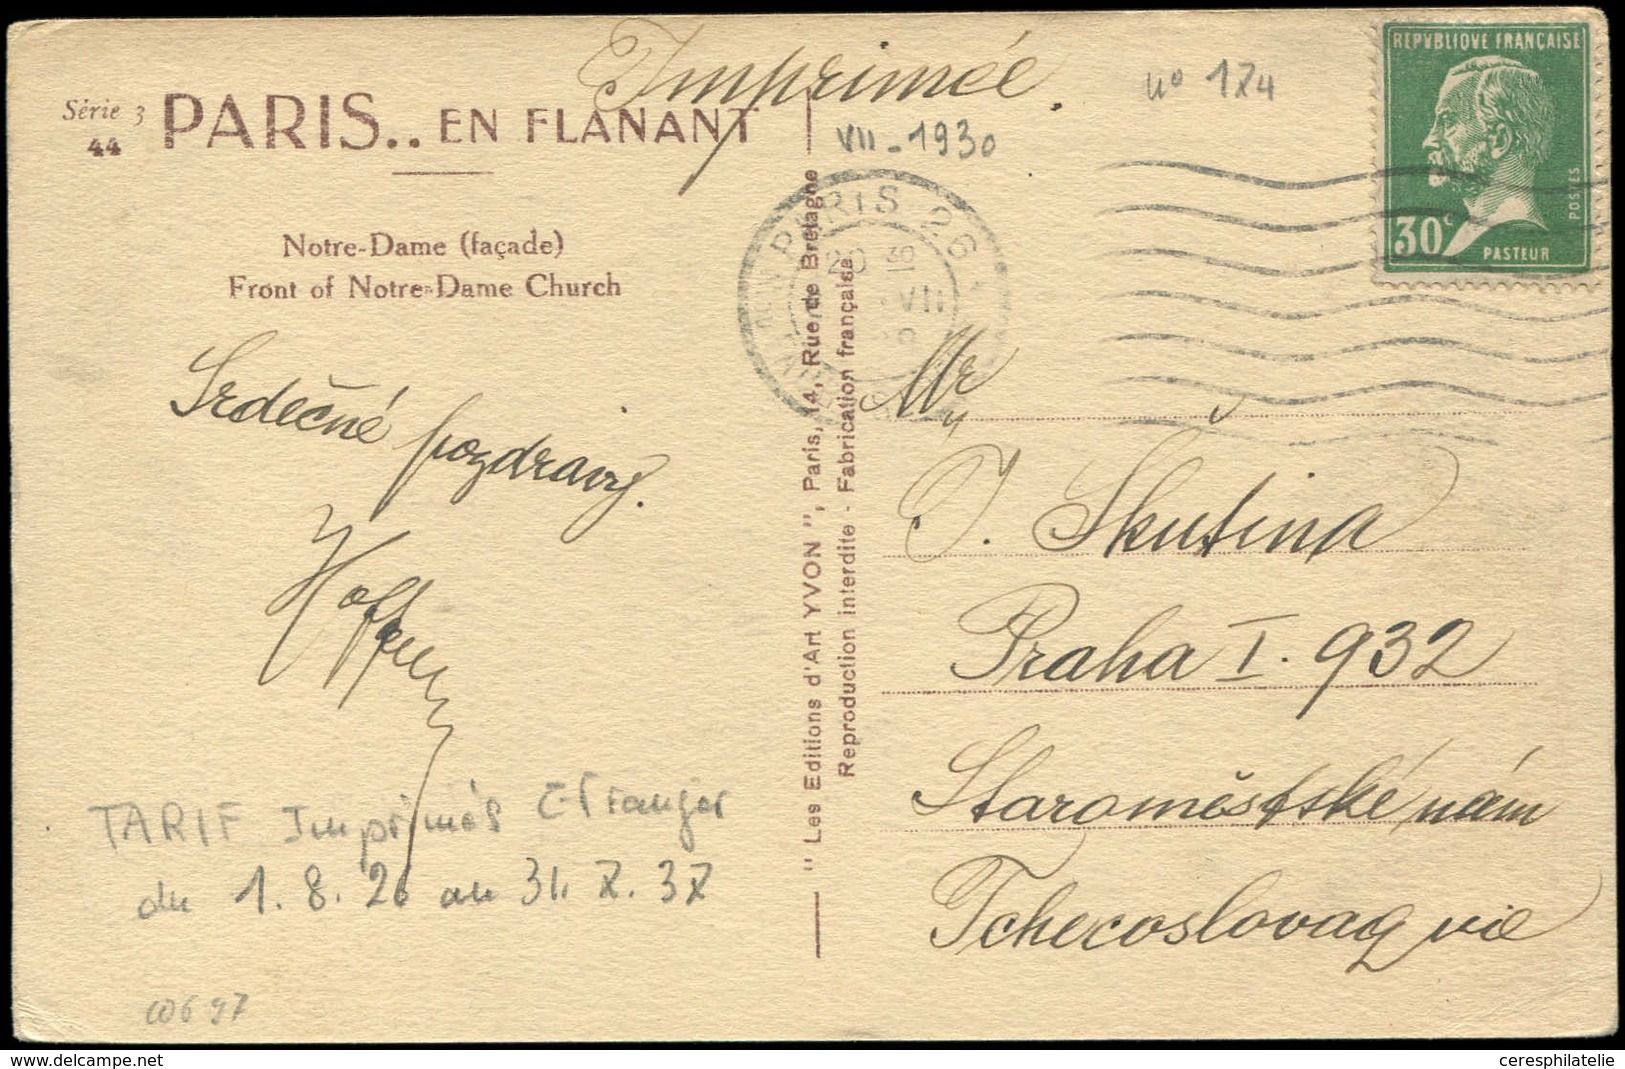 Imprimée.
Série 3
44
PARIS.. EN FLANANT
Notre-Dame (façade)
Front of Notre-Dame Church
n° 174
VII - 1930
REPVBLIQVE FRANÇAISE
POSTES
30c
PASTEUR
PARIS 26
20 30
VII
"Les Editions d'Art YVON", Paris, 14, Rue de Bretagne
Reproduction interdite - Fabrication française
Srdečné pozdravy.
Mr
J. Skutina
Praha I. 932
Staroměstské nám
Tchecoslovaquie
TARIF Imprimés Etranger
du 1.8.26 au 31.7.37
delcampe.net
ceresphilatelie